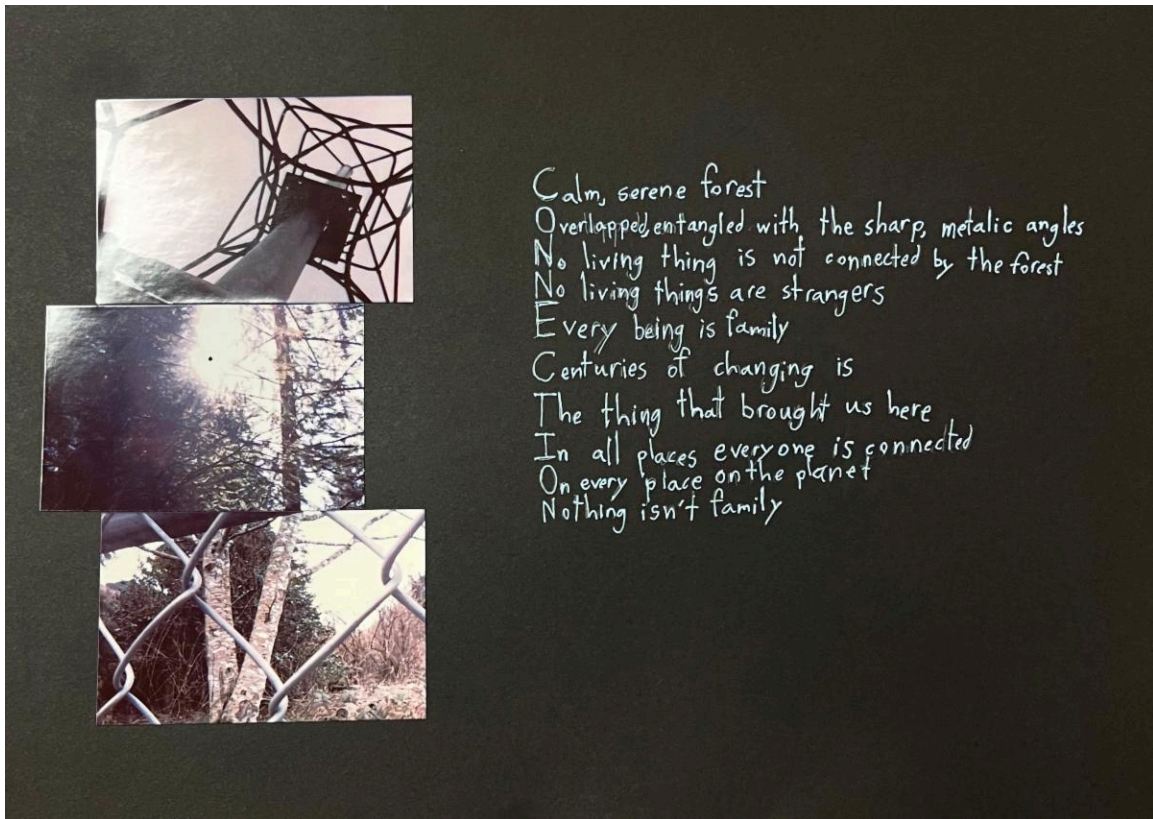 Calm, serene forest
Overlapped, entangled with the sharp, metalic angles
No living thing is not connected by the forest
No living things are strangers
Every being is family
Centuries of changing is
The thing that brought us here
In all places everyone is connected
On every place on the planet
Nothing isn't family